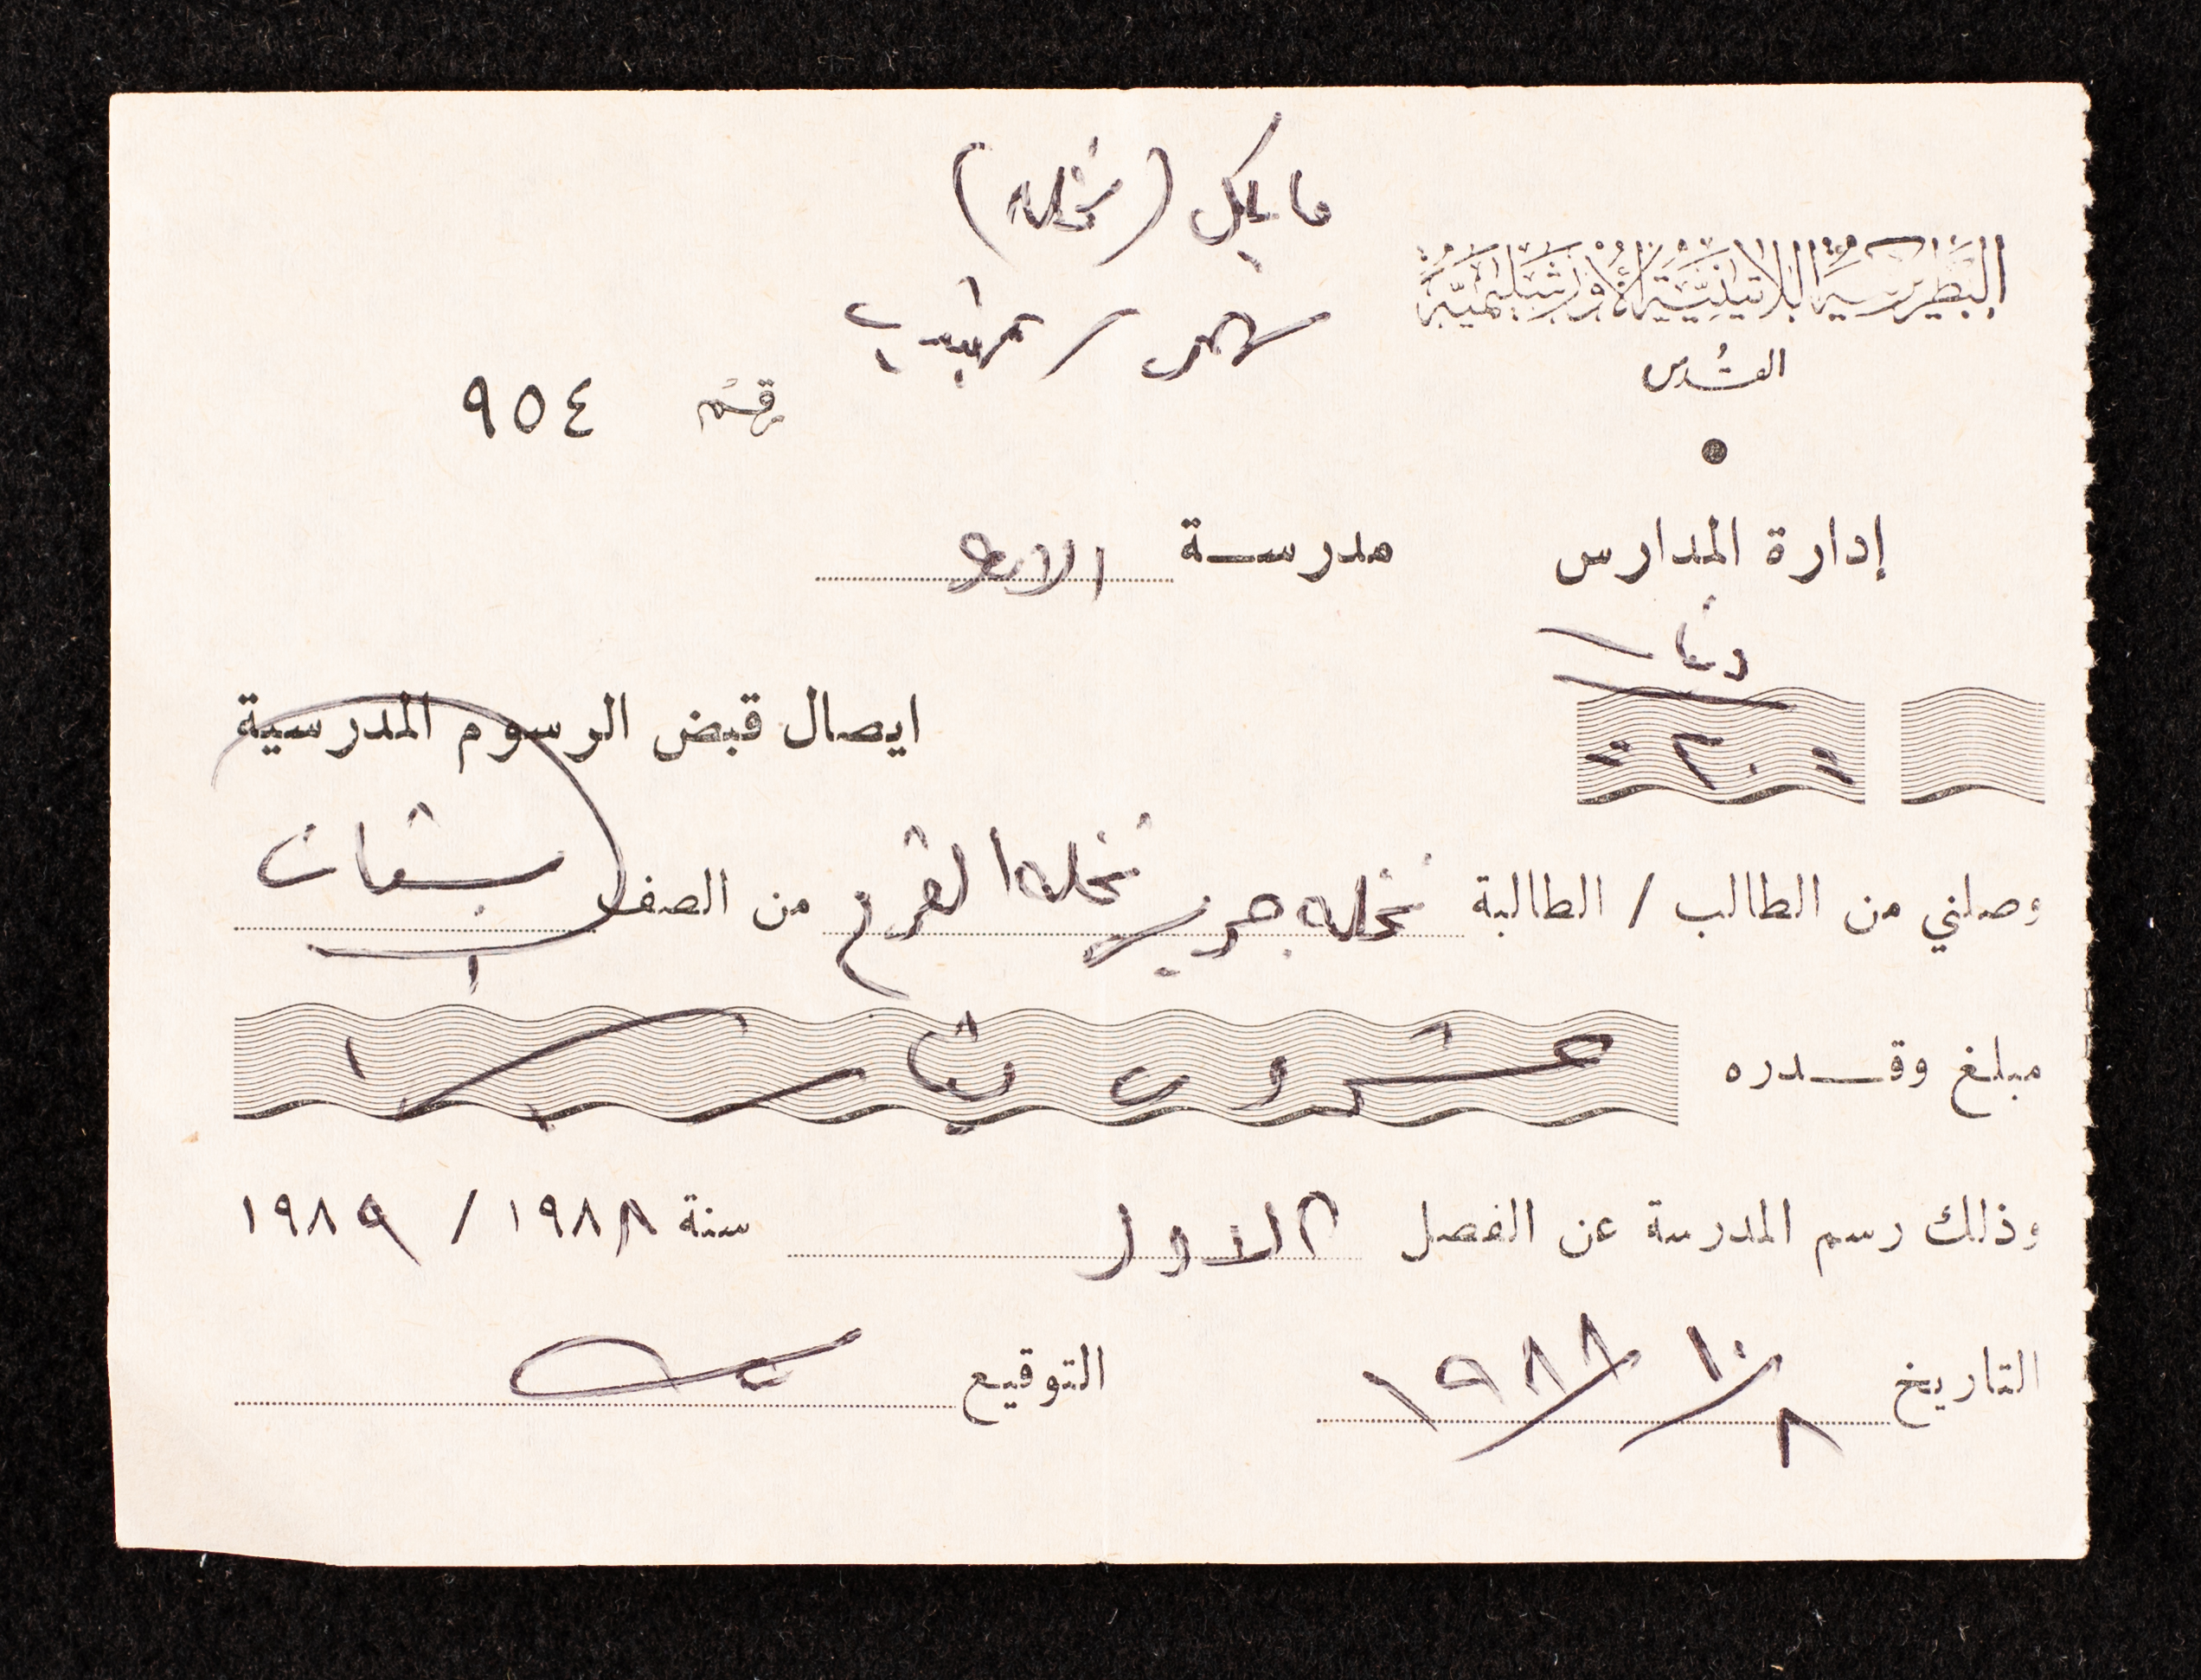 مايكل (نخله)
شهر تشرين
البطريركية اللاتينية الأورشليمية
القدس
رقم ٩٥٤
إدارة المدارس
مدرسة
دينار
= ٢٠ =
ايصال قبض الرسوم المدرسية
وصلني من الطالب / الطالبة نخله جريس نخله القرع من الصف بستان
مبلغ وقدره عشرون دينار
وذلك رسم المدرسة عن الفصل الاول سنة ١٩٨٨ / ١٩٨٩
التاريخ ٨/١٠/١٩٨٨ التوقيع